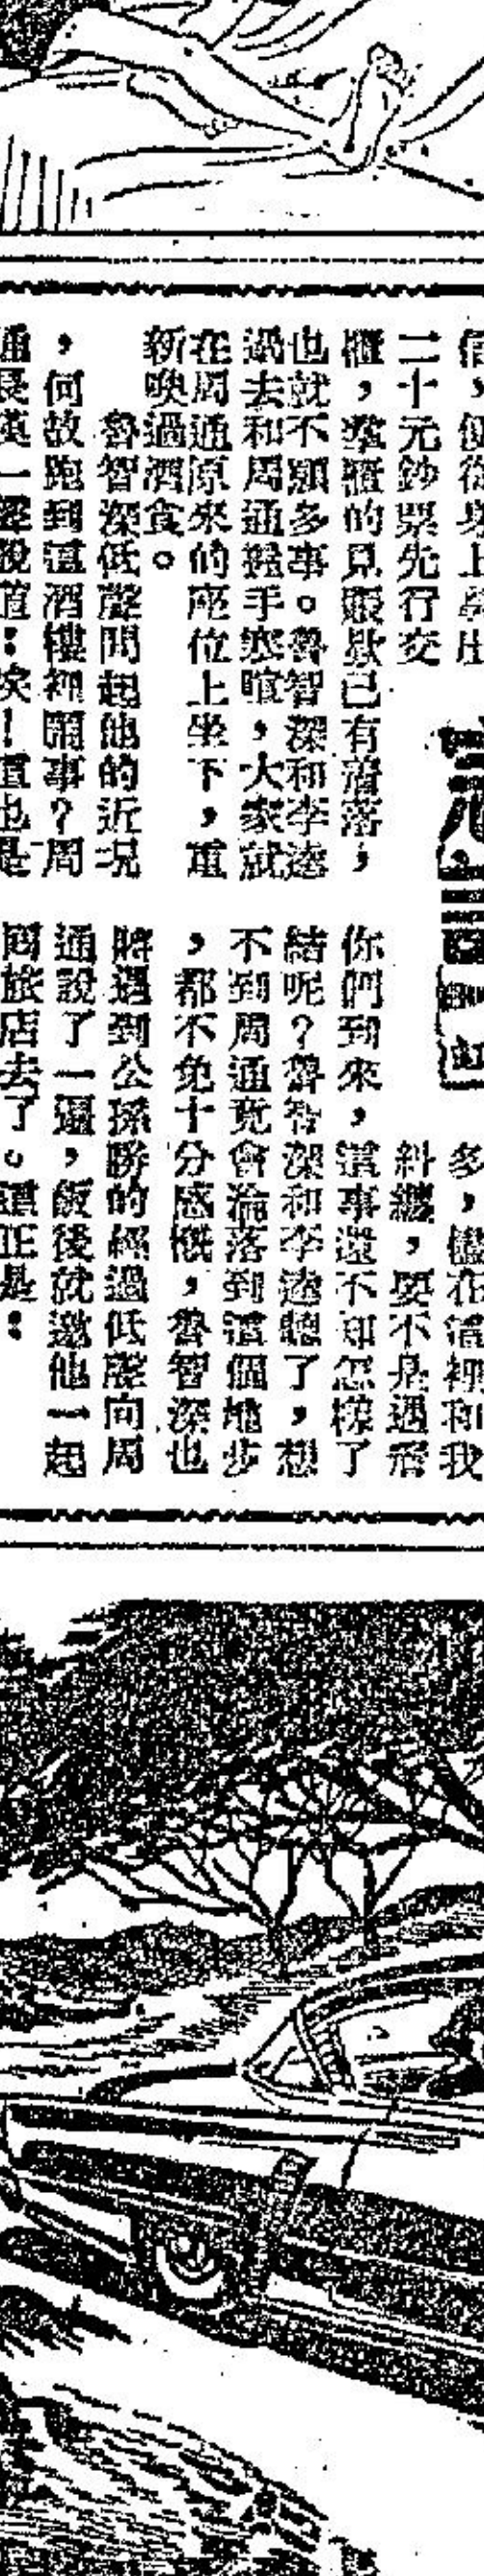 信，便從身上拿出
二十元鈔票先行交
櫃，掌櫃的見賬欵已有着落，
也就不願多事。魯智深和李逵
過去和周通握手寒暄，大家就
在周通原來的座位上坐下，重
新喚過酒食。
魯智深低聲問起他的近况
，何故跑到這酒樓裡鬧事？周
通長嘆一聲說道：唉！這也是
多，儘在這裡和我
糾纏，要不是遇着
你們到來，這事還不知怎樣了
結呢？魯智深和李逵聽了，想
不到周通竟會淪落到這個地步
，都不免十分感慨，魯智深也
將遇到公孫勝的經過低聲向周
通說了一遍，飯後就邀他一起
囘旅店去了。這正是：